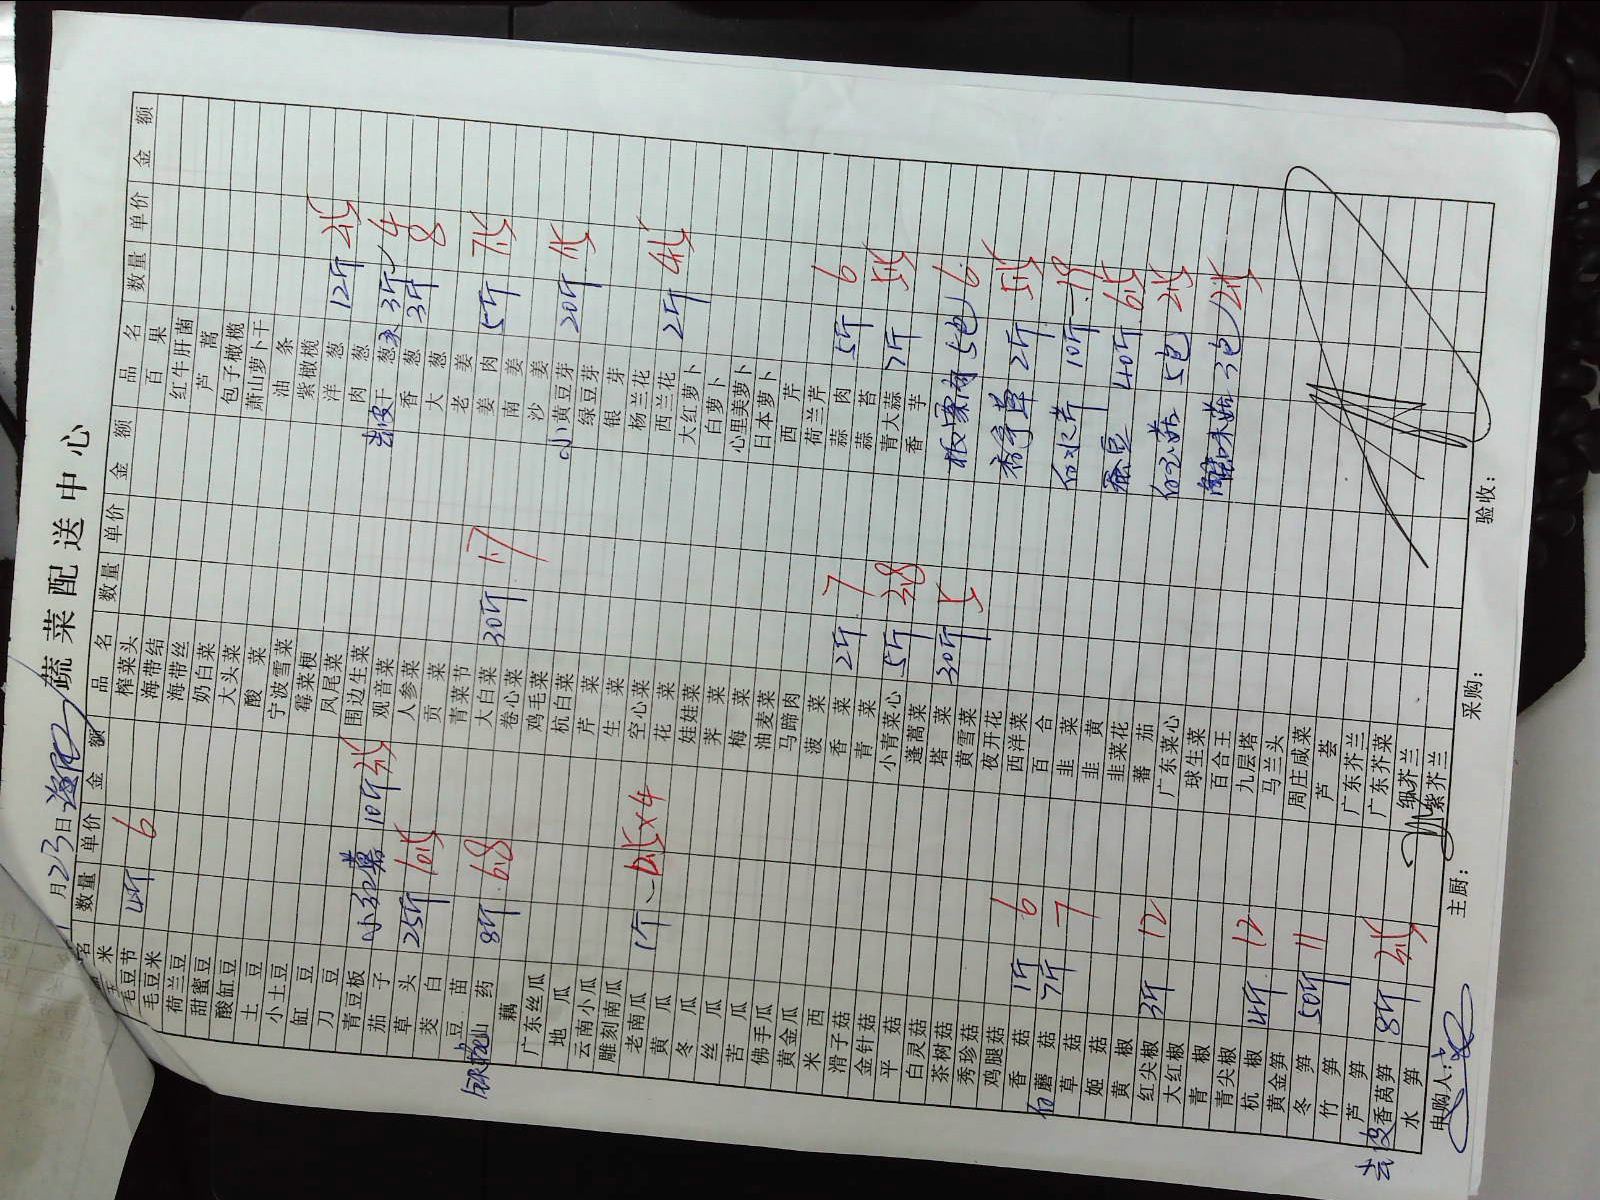 蔬菜配送中心
月23日
名 数量 单价 金额 品名 数量 单价 金额 品名 数量 单价 金额
玉米 榨菜头 百果
毛豆节 4斤 6 海带结 红牛肝菌
毛豆米 海带丝 芦蒿
荷兰豆 奶白菜 包子橄榄
甜蜜豆 大头菜 萧山萝卜干
酸缸豆 酸菜 油条
土豆 宁波雪菜 紫橄榄
小土豆 霉菜梗 洋葱 12斤
缸豆 凤尾菜 肉葱
刀豆 围边生菜 干葱 3斤 4
青豆板 小红薯 10斤 观音菜 香葱 3斤 8
茄子 人参菜 大葱
草头 25斤 贡菜 老姜
茭白 青菜节 姜肉 5斤
豆苗 大白菜 30斤 1.7 南姜
山药 8斤 6.8 卷心菜 沙姜
藕 鸡毛菜 小黄豆芽 20斤
广东丝瓜 杭白菜 绿豆芽
地瓜 芹菜 银芽
云南小瓜 生菜 杨兰花
雕刻南瓜 空心菜 西兰花 2斤
老南瓜 1斤 花菜 大红萝卜
黄瓜 娃娃菜 白萝卜
冬瓜 荠菜 心里美萝卜
丝瓜 梅菜 日本萝卜
苦瓜 油麦菜 西芹
佛手瓜 马蹄肉 荷兰芹
黄金瓜 菠菜 蒜肉 5斤 6
米西 香菜 2斤 7 蒜苔
滑子菇 青菜 青大蒜 2斤
金针菇 小青菜心 5斤 3.8 香芋
平菇 蓬蒿菜
白灵菇 塔菜 30斤 5包 6
茶树菇 黄雪菜
秀珍菇 夜开花 2斤
鸡腿菇 西洋菜
香菇 1斤 6 百合 白水芹 10斤
白蘑菇 7斤 7 韭菜
草菇 韭黄 蚕豆 40斤
姬菇 韭菜花
黄椒 蕃茄 白玉菇 5包
红尖椒 3斤 12 广东菜心
大红椒 球生菜 蟹味菇 3包
青椒 百合王
青尖椒 九层塔
杭椒 4斤 12 马兰头
黄金笋 周庄咸菜
冬笋 50斤 11 芦荟
竹笋 广东芥兰
芦笋 广东芥菜
去皮香莴笋 8斤 纵芥兰
水笋 紫芥兰
申购人: 主厨: 采购: 验收: